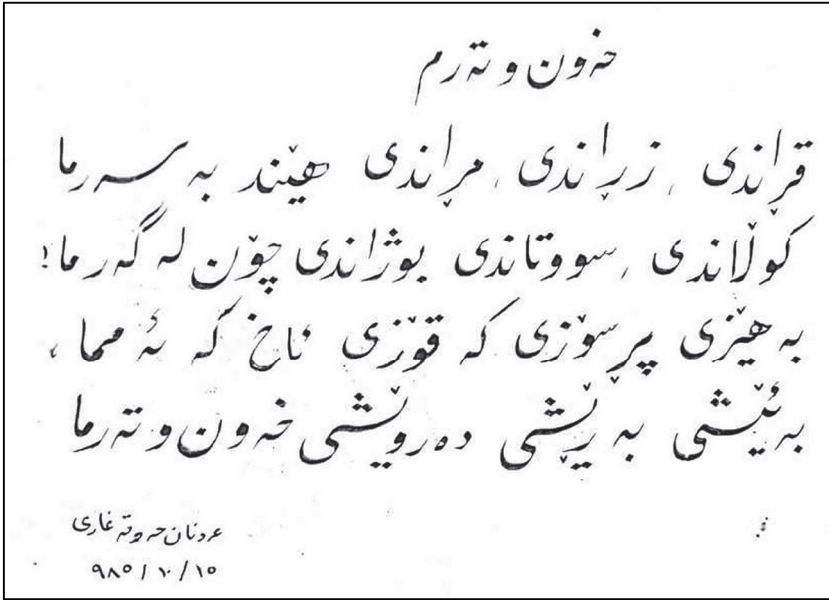 خەون و تەرم
قڕاندی، زڕاندی، مڕاندی هێند بە سەرما
کوڵاندی، سووتاندی بوژاندی چۆن لە گەرما!
بە هێزی پڕسۆزی کە قۆزی ئاخ کە ئەمما،
بە ئێشی بە ڕێشی دەروێشی خەون و تەرما
عدنان حەوتە غاری
٩٨٥/١٠/١٥